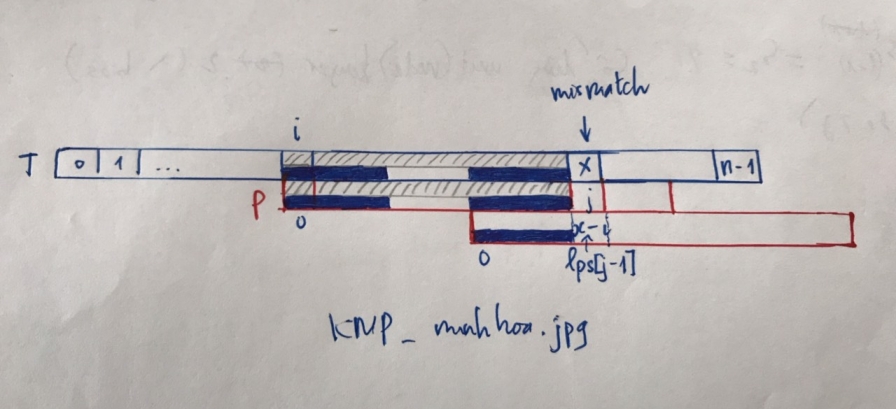 mismatch
i
T 0 1 ... x n-1
P j
0
0 lps[j-1]
KMP_minhhoa.jpg